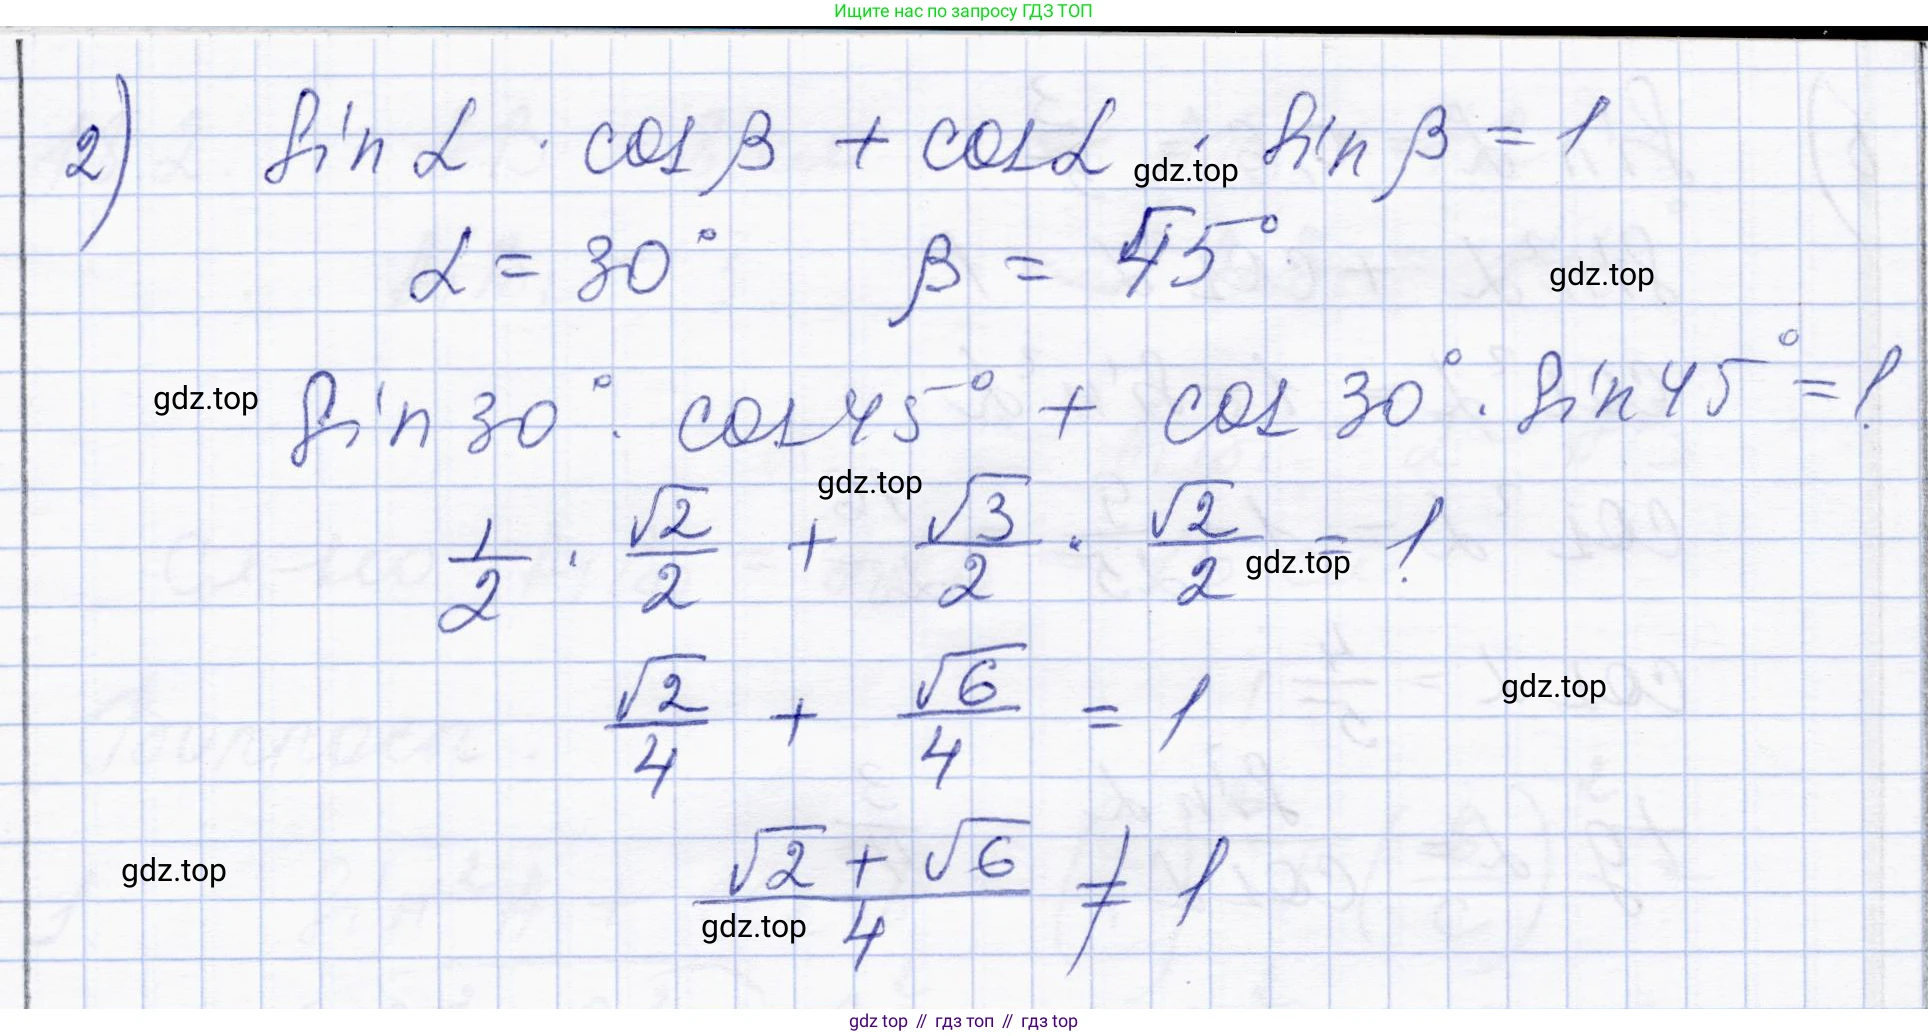 Ищите нас по запросу ГДЗ ТОП
2) sin α · cos β + cos α · sin β = 1
gdz.top
α = 30° β = 45°
gdz.top
gdz.top
sin 30° · cos 45° + cos 30° · sin 45° = 1
gdz.top
1/2 · √2/2 + √3/2 · √2/2 = 1
gdz.top
√2/4 + √6/4 = 1
gdz.top
(√2 + √6)/4 ≠ 1
gdz.top
gdz.top
gdz top // гдз топ // gdz top